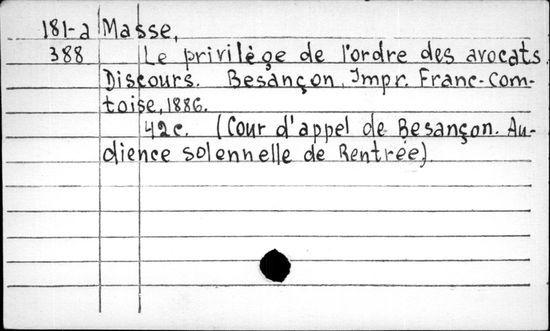 181-a Masse,
388 Le privilège de l'ordre des avocats.
Discours. Besançon, Impr. Franc-Com-
toise, 1886.
42c. (Cour d'appel de Besançon. Au-
dience solennelle de Rentrée)